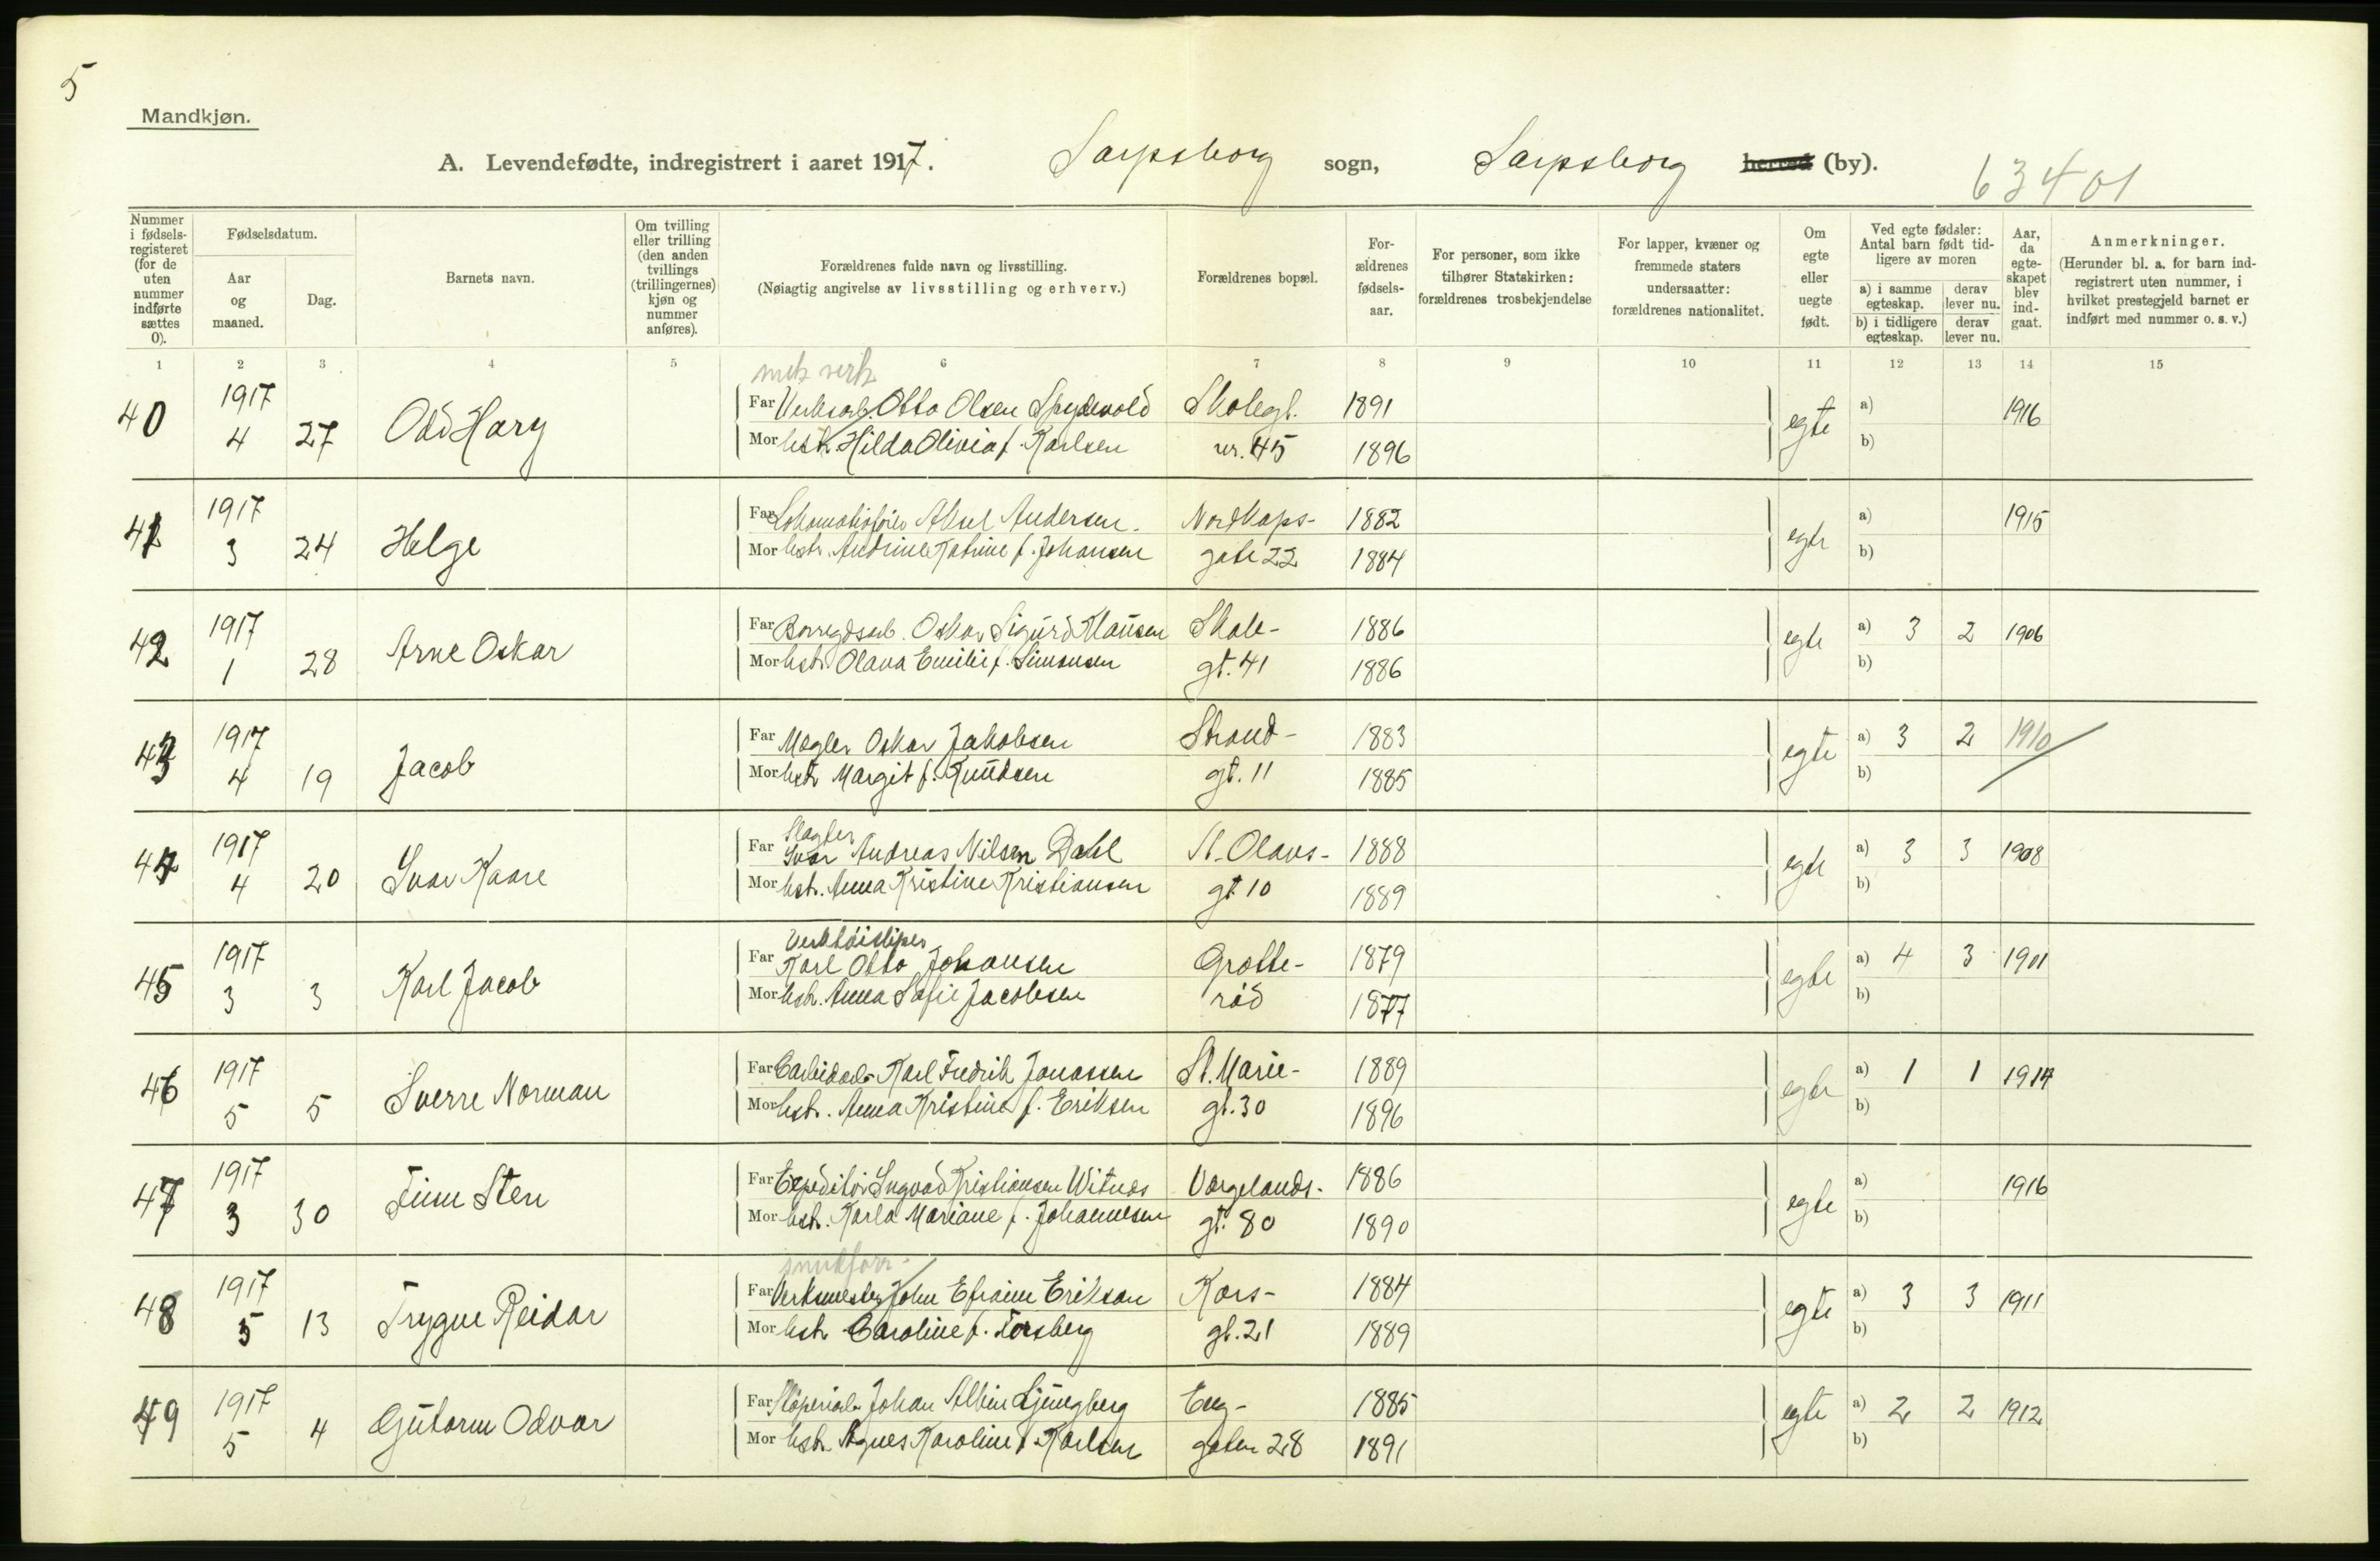 5
Mandkjøn.
A. Levendefødte, indregistrert i aaret 1917. Sarpsborg sogn, Sarpsborg herred (by). 63401
Nummer i fødsels-registeret (for de uten nummer indførte sættes 0).
Fødselsdatum.
Aar og maaned.
Dag.
Barnets navn.
Om tvilling eller trilling (den anden tvillings (trillingernes) kjøn og nummer anføres).
Forældrenes fulde navn og livsstilling.
(Nøiagtig angivelse av livsstilling og erhverv.)
Forældrenes bopæl.
For-ældrenes fødsels-aar.
For personer, som ikke tilhører Statskirken: forældrenes trosbekjendelse
For lapper, kvæner og fremmede staters undersaatter: forældrenes nationalitet.
Om egte eller uegte født.
Ved egte fødsler: Antal barn født tid-ligere av moren
a) i samme egteskap. derav lever nu.
b) i tidligere egteskap. derav lever nu.
Aar, da egte-skapet blev ind-gaat.
Anmerkninger.
(Herunder bl. a. for barn ind-registrert uten nummer, i hvilket prestegjeld barnet er indført med nummer o. s. v.)
1 2 3 4 5 6 7 8 9 10 11 12 13 14 15
mek verk
40 1917 Odd Hary Far Verksarb. Otto Olsen Spydevold Skolegt. 1891 egte a) 1916
4 27 Mor hstr. Hilda Olivia f. Karlsen nr. 45 1896 b)
41 1917 Helge Far Lokomotivfører Aksel Andersen. Nordkaps- 1882 egte a) 1915
3 24 Mor hstr. Andrine Katrine f. Johansen gate 22 1884 b)
42 1917 Arne Oskar Far Borregdsarb. Oskar Sigurd Klausen Skole- 1886 egte a) 3 2 1906
1 28 Mor hstr. Olava Emilie f. Simonsen gt. 41 1886 b)
43 1917 Jacob Far Megler Oskar Jakobsen Strand- 1883 egte a) 3 2 1910
4 19 Mor hstr. Margit f. Knudsen gt. 11 1885 b)
Slagter
44 1917 Ivar Kaare Far Ivar Andreas Nilsen Dahl St. Olavs- 1888 egte a) 3 3 1908
4 20 Mor hstr. Anna Kristine Kristiansen gt 10 1889 b)
Verktøisliper
45 1917 Karl Jacob Far Karl Otto Johansen Grotte- 1879 egte a) 4 3 1901
3 3 Mor hstr. Anna Sofie Jacobsen rød 1877 b)
46 1917 Sverre Norman Far Carbidarb. Karl Fredrik Jonassen St. Marie- 1889 egte a) 1 1 1914
5 5 Mor hstr. Anna Kristine f. Eriksen gt. 30 1896 b)
47 1917 Finn Sten Far Expeditør Ingvad Kristiansen Witnes Vergelands- 1886 egte a) 1916
3 30 Mor hstr. Karla Mariane f. Johannesen gt. 80 1890 b)
48 1917 Trygve Reidar Far Verksmester John Efraim Erikson Kors- 1884 egte a) 3 3 1911
5 13 Mor hstr. Caroline f. Forsberg gt. 21 1889 b)
49 1917 Gutorm Odvar Far Johan Albin Ljungberg Eng- 1885 egte a) 2 2 1912
5 4 Mor hstr. Agnes Karoline f. Karlsen gaten 28 1891 b)